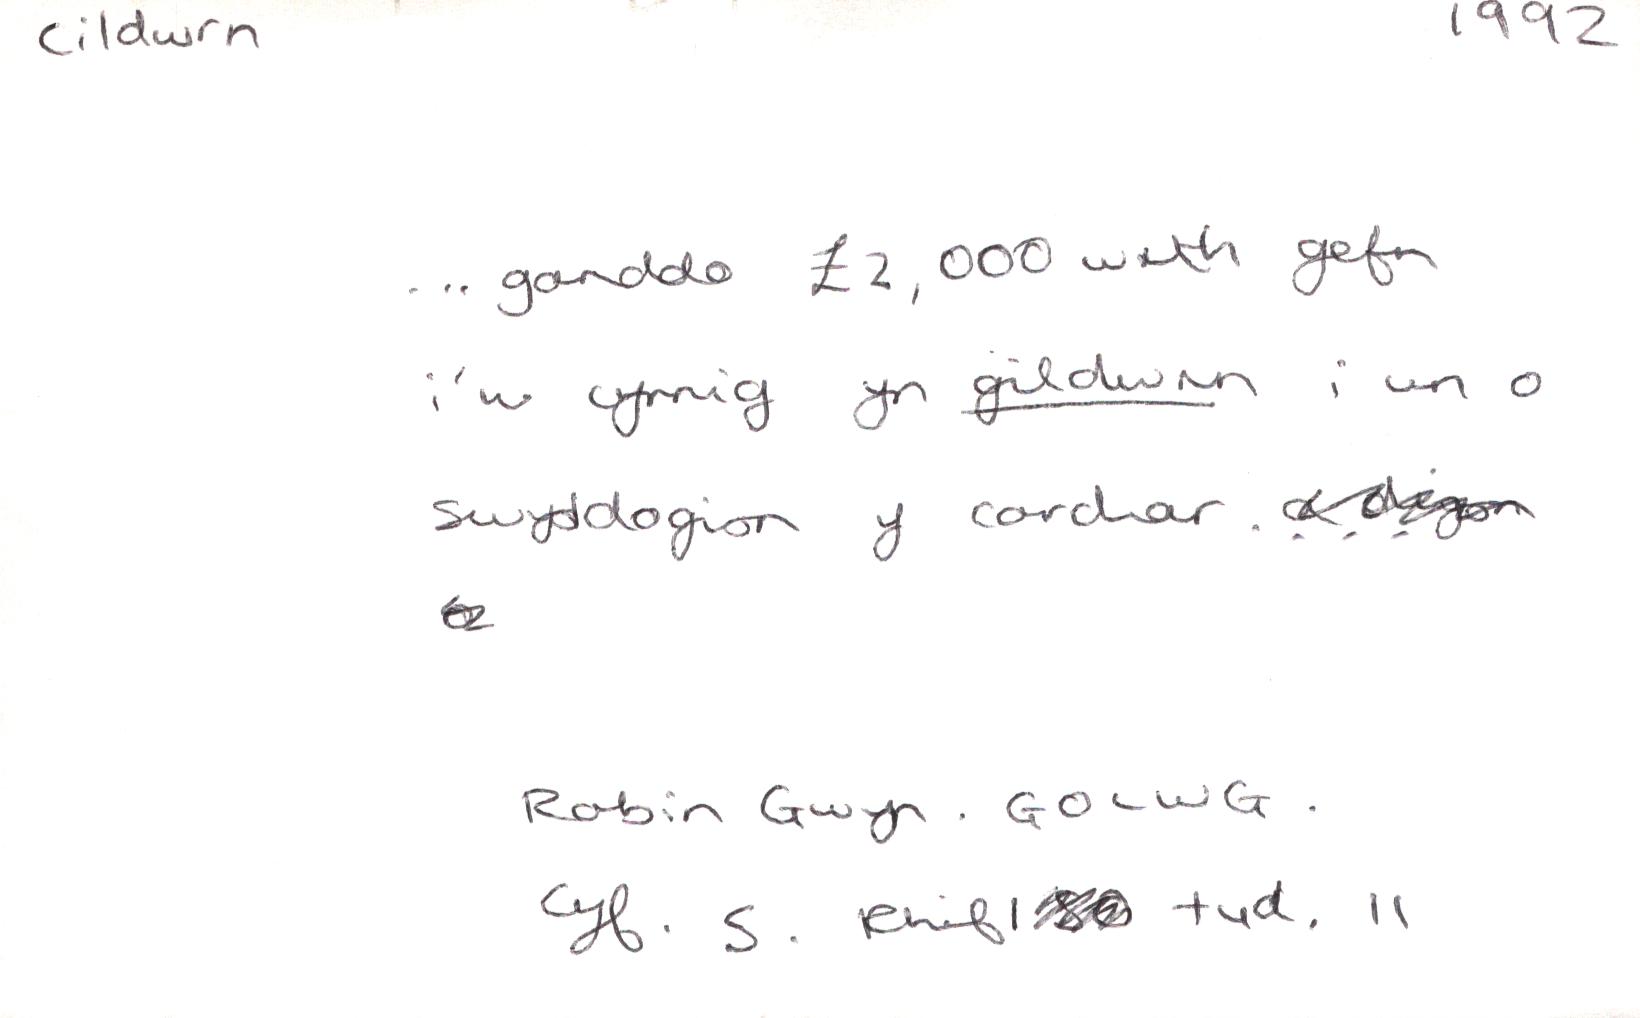 cildwrn 1992
... ganddo £2,000 wrth gefn
i'w cynnig yn gildwrn i un o
swyddogion y carchar.
Robin Gwyn. GOLWG.
Cyf. 5. Rhif 1 tud. 11